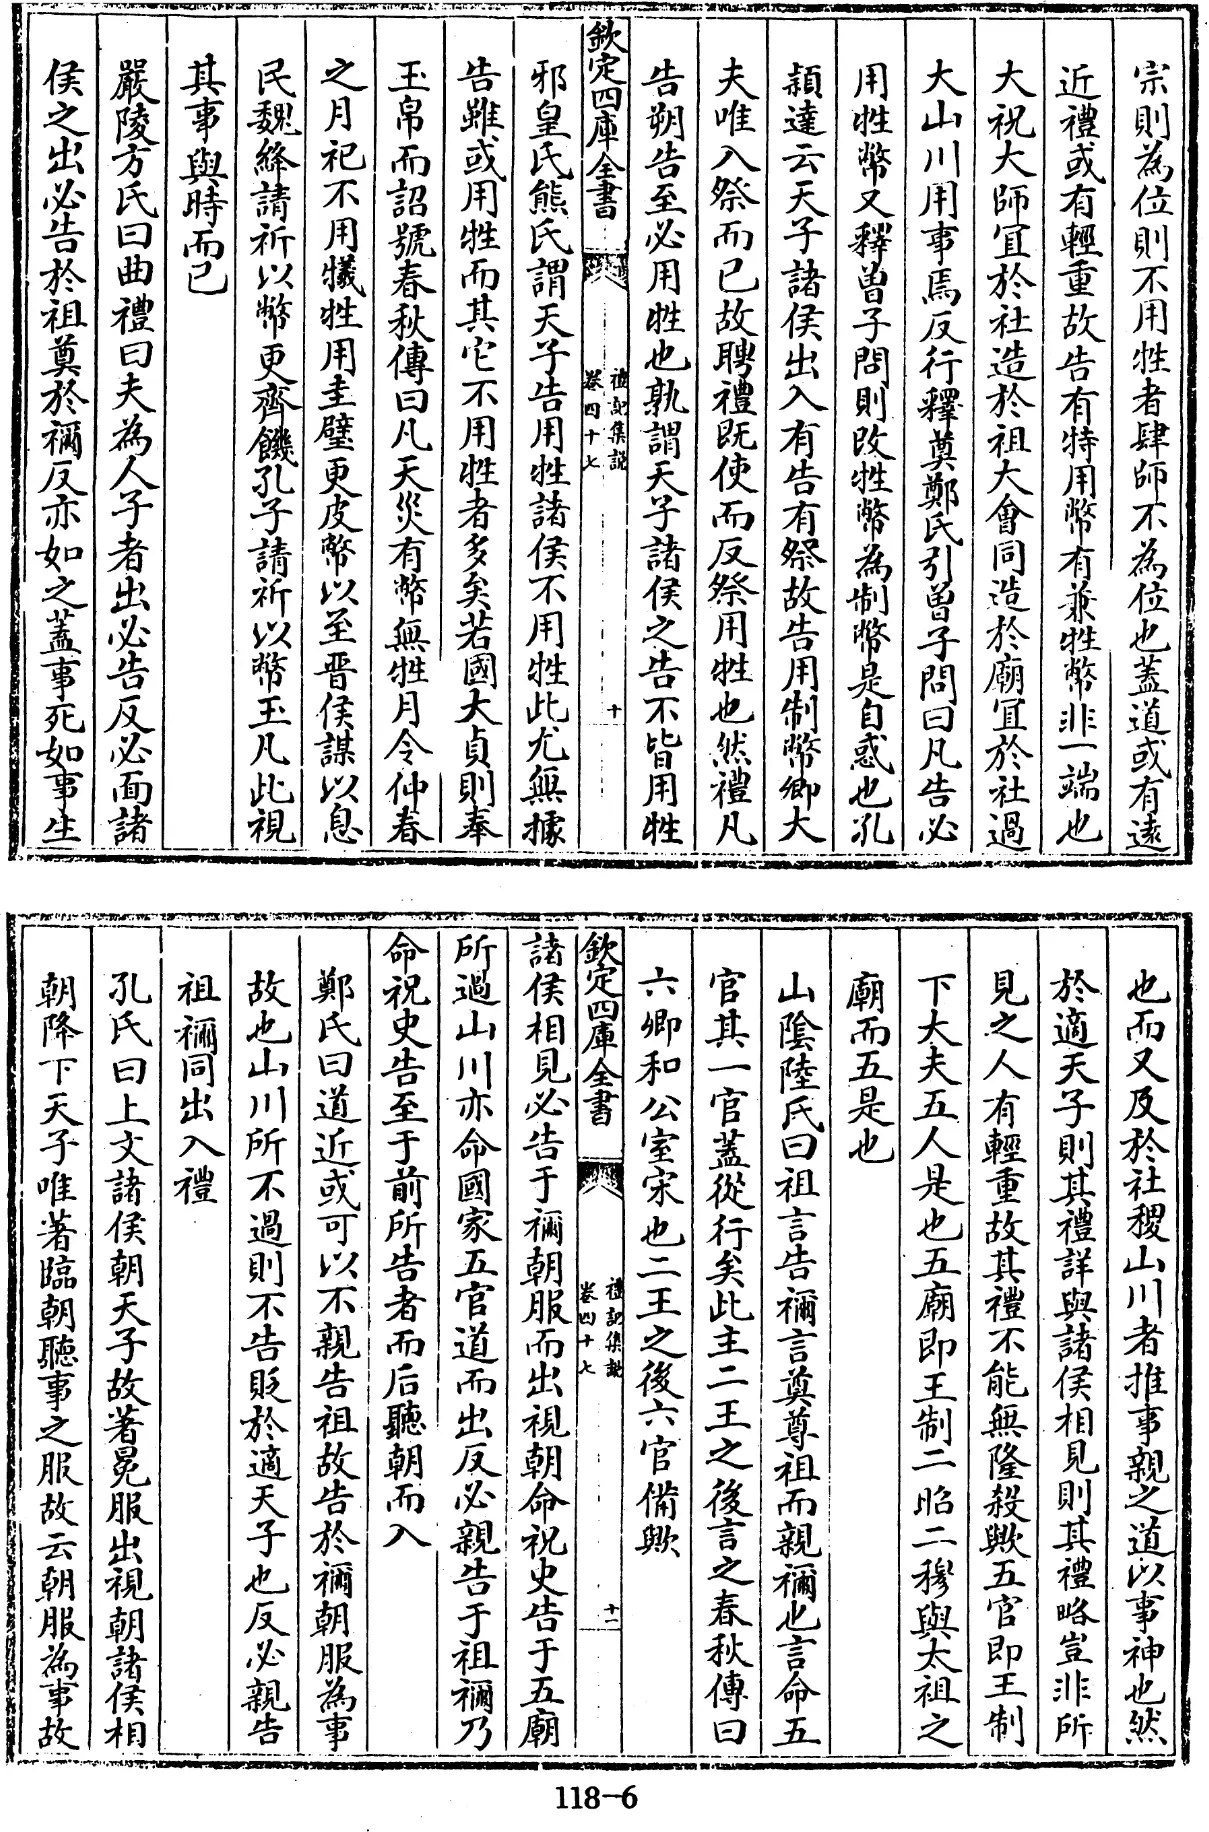 宗則為位則不用牲者肆師不為位也蓋道或有遠
近禮或有輕重故告有特用幣有兼牲幣非一端也
大祝大師宜於社造於祖大會同造於廟宜於社過
大山川用事焉反行釋奠鄭氏引曾子問曰凡告必
用牲幣又釋曾子問則改牲幣為制幣是自惑也孔
穎達云天子諸侯出入有告有祭故告用制幣卿大
夫唯入祭而已故聘禮既使而反祭用牲也然禮凡
告朔告至必用牲也孰謂天子諸侯之告不皆用牲
欽定四庫全書
禮記集說
卷四十七
十
邪皇氏熊氏謂天子告用牲諸侯不用牲此尤無據
告雖或用牲而其它不用牲者多矣若國大貞則奉
玉帛而詔號春秋傳曰凡天災有幣無牲月令仲春
之月祀不用犧牲用圭璧更皮幣以至晉侯謀以息
民魏絳請祈以幣更齊饑孔子請祈以幣玉凡此視
其事與時而已
嚴陵方氏曰曲禮曰夫為人子者出必告反必面諸
侯之出必告於祖奠於禰反亦如之蓋事死如事生
也而又及於社稷山川者推事親之道以事神也然
於適天子則其禮詳與諸侯相見則其禮略豈非所
見之人有輕重故其禮不能無隆殺歟五官即王制
下大夫五人是也五廟即王制二昭二穆與太祖之
廟而五是也
山陰陸氏曰祖言告禰言奠尊祖而親禰也言命五
官其一官蓋從行矣此主二王之後言之春秋傳曰
六卿和公室宋也二王之後六官備歟
欽定四庫全書
禮記集說
卷四十七
十一
諸侯相見必告于禰朝服而出視朝命祝史告于五廟
所過山川亦命國家五官道而出反必親告于祖禰乃
命祝史告至于前所告者而后聽朝而入
鄭氏曰道近或可以不親告祖故告於禰朝服為事
故也山川所不過則不告貶於適天子也反必親告
祖禰同出入禮
孔氏曰上文諸侯朝天子故著冕服出視朝諸侯相
朝降下天子唯著臨朝聽事之服故云朝服為事故
118-6